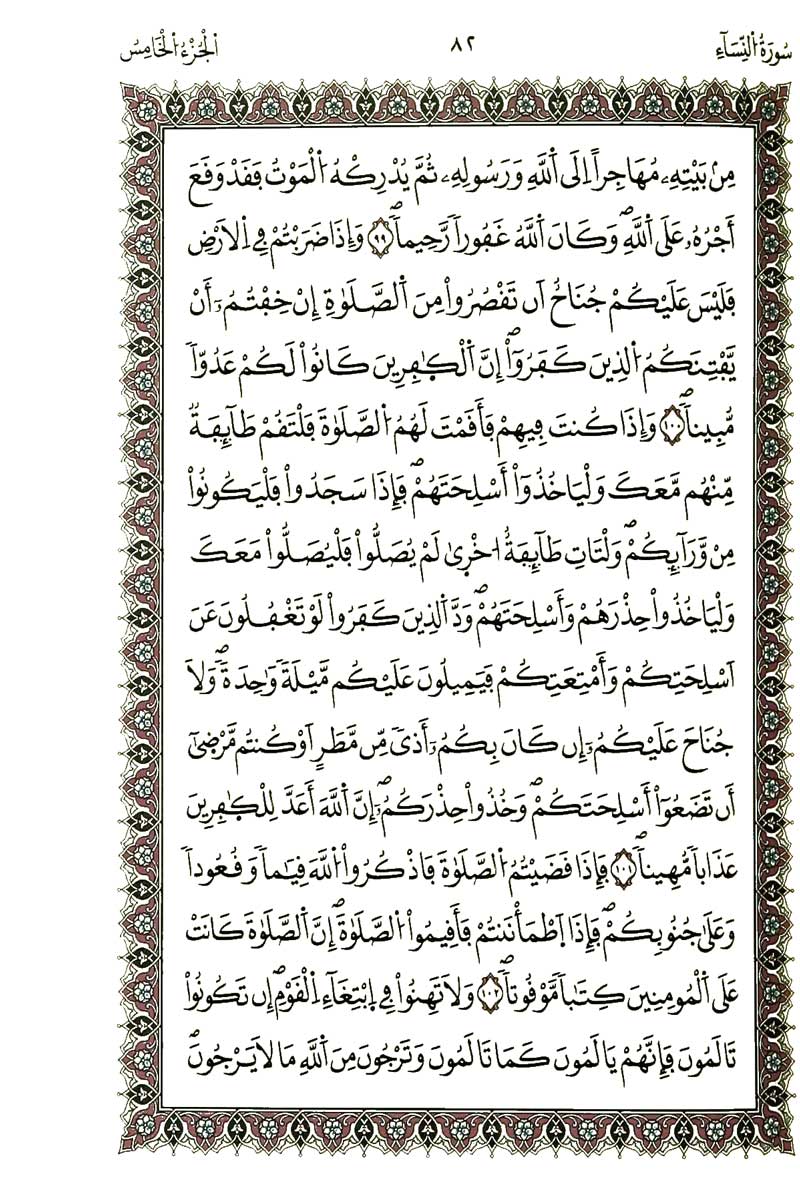 سُورَةُ النِّسَآءِ
٨٢
الْجُزْءُ الْخَامِسُ
مِنۢ بَيْتِهِۦ مُهَاجِراً اِلَى اَللَّهِ وَرَسُولِهِۦ ثُمَّ يُدْرِكْهُ اُلْمَوْتُ فَقَدْ وَقَعَ
أَجْرُهُۥ عَلَى اَللَّهِۖ وَكَانَ اَللَّهُ غَفُوراً رَّحِيماًۖ ٩٩ وَإِذَا ضَرَبْتُمْ فِے اِلَارْضِ
فَلَيْسَ عَلَيْكُمْ جُنَاحٌ اَن تَقْصُرُواْ مِنَ اَلصَّلَوٰةِ إِنْ خِفْتُمُۥٓ أَنْ
يَّفْتِنَكُمُ اُلذِينَ كَفَرُوٓاْۖ إِنَّ اَلْكٰفِرِينَ كَانُواْ لَكُمْ عَدُوّاً
مُّبِيناًۖ ١٠٠ وَإِذَا كُنتَ فِيهِمْ فَأَقَمْتَ لَهُمُ اُلصَّلَوٰةَ فَلْتَقُمْ طَآئِفَةٌ
مِّنْهُم مَّعَكَ وَلْيَاخُذُوٓاْ أَسْلِحَتَهُمْۖ فَإِذَا سَجَدُواْ فَلْيَكُونُواْ
مِنْ وَّرَآئِكُمْۖ وَلْتَاتِ طَآئِفَةٌ ا۟خْرٜىٰ لَمْ يُصَلُّواْ فَلْيُصَلُّواْ مَعَكَ
وَلْيَاخُذُواْ حِذْرَهُمْ وَأَسْلِحَتَهُمْۖ وَدَّ اَلذِينَ كَفَرُواْ لَوْ تَغْفُلُونَ عَنَ
اَسْلِحَتِكُمْ وَأَمْتِعَتِكُمْ فَيَمِيلُونَ عَلَيْكُم مَّيْلَةً وَٰحِدَةًۖ وَلَا
جُنَاحَ عَلَيْكُمُۥٓ إِن كَانَ بِكُمُۥٓ أَذىً مِّن مَّطَرٍ اَوْ كُنتُم مَّرْضٜىٰٓ
أَن تَضَعُوٓاْ أَسْلِحَتَكُمْۖ وَخُذُواْ حِذْرَكُمُۥٓۖ إِنَّ اَللَّهَ أَعَدَّ لِلْكٰفِرِينَ
عَذَاباً مُّهِيناًۖ ١٠١ فَإِذَا قَضَيْتُمُ اُلصَّلَوٰةَ فَاذْكُرُواْ اُللَّهَ قِيَٰماً وَقُعُوداً
وَعَلَىٰ جُنُوبِكُمْۖ فَإِذَا اَطْمَأْنَنتُمْ فَأَقِيمُواْ اُلصَّلَوٰةَۖ إِنَّ اَلصَّلَوٰةَ كَانَتْ
عَلَى اَلْمُومِنِينَ كِتَٰباً مَّوْقُوتاًۖ ١٠٢ وَلَا تَهِنُواْ فِے اِبْتِغَآءِ اِلْقَوْمِۖ إِن تَكُونُواْ
تَالَمُونَ فَإِنَّهُمْ يَالَمُونَ كَمَا تَالَمُونَ وَتَرْجُونَ مِنَ اَللَّهِ مَا لَا يَرْجُونَۖ